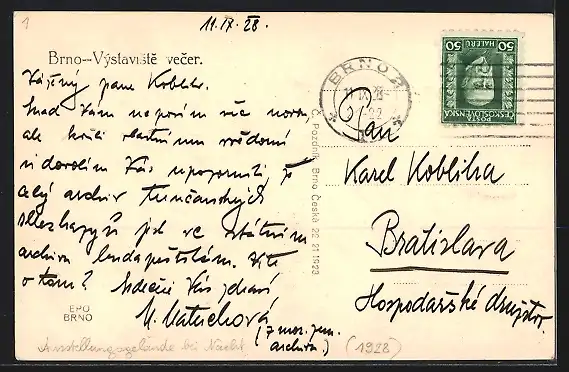 11.IX.28.
Brno--Výstaviště večer.
Vážený pane Koblihо.
snad Vám nepovím nic nového
ale kvůli vlastnímu svědomí
si dovolím Vás upozorniti, že
celý archiv Trenčanských
jsou ve státním
archivu budapešťském. Víte
o tom? Srdečně Vás zdraví
M. Matuchová
(z mor. zem.
archivu.)
EPO
BRNO
Ausstellungsgelände bei Nacht
(1928)
Č. Pozdník, Brno Česká 22 21 1923
BRNO 2
11.IX.28
50 50
HALÉŘŮ
POŠTA
ČESKOSLOVENSKÁ
Pan
Karel Kobliha
Bratislava
Hospodářské družstvo.